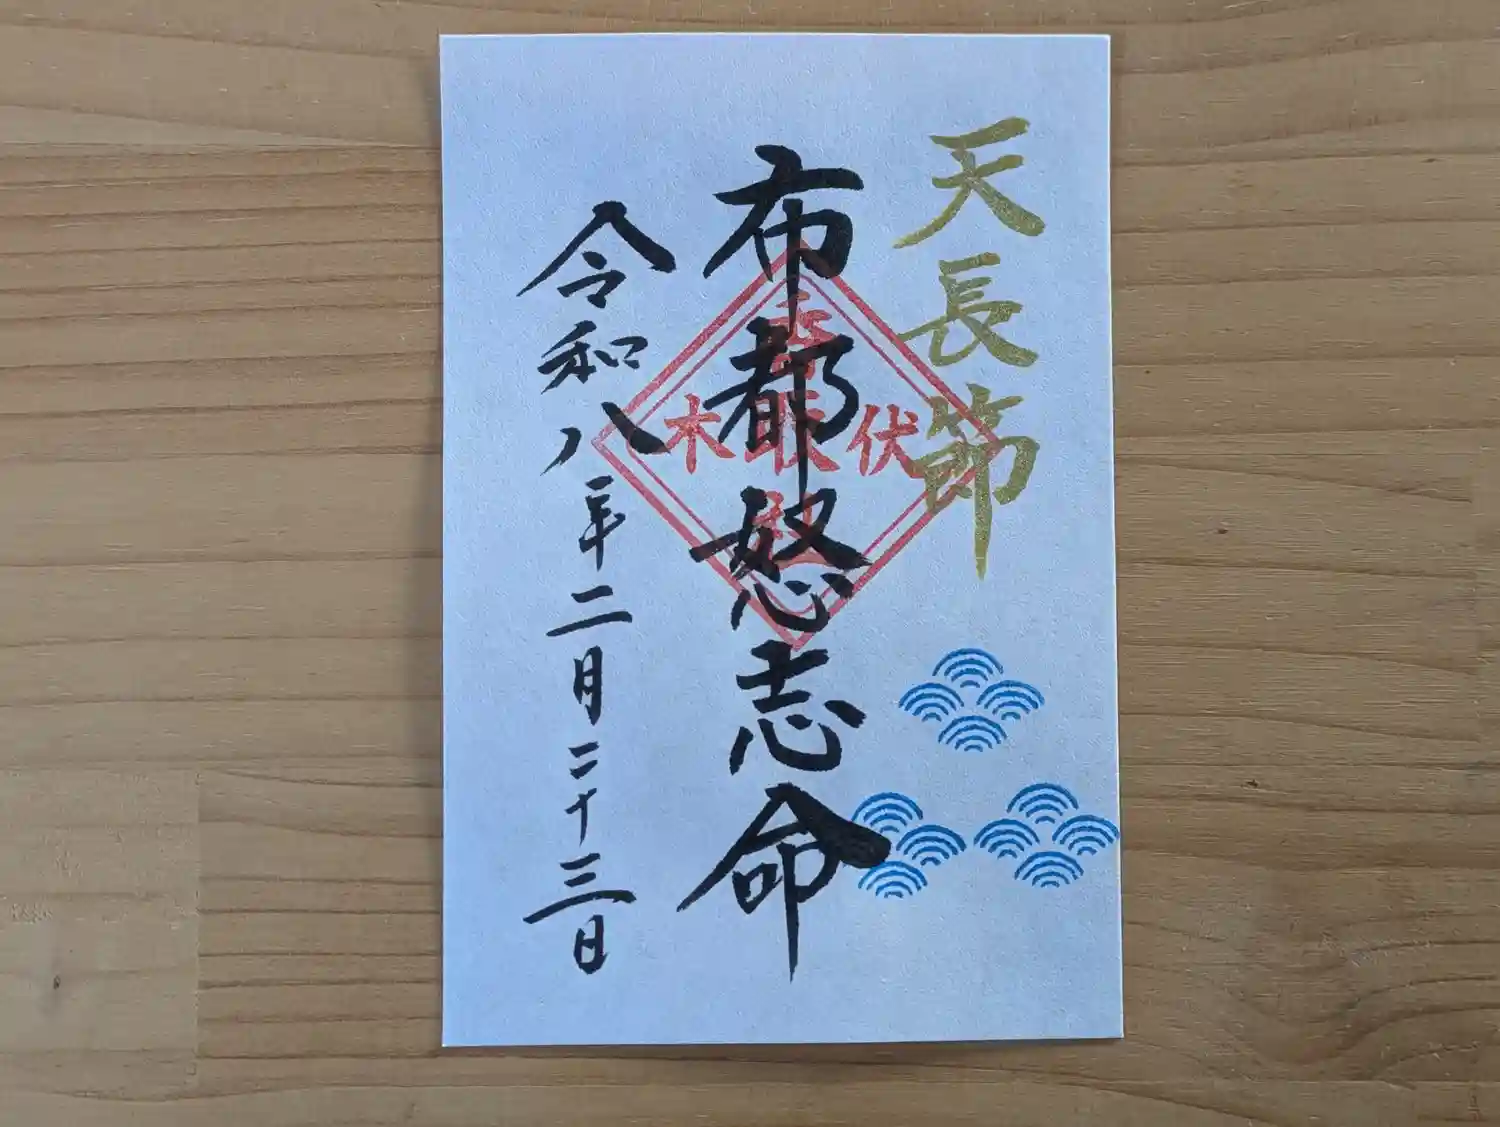 天長節
布都怒志命
伏木
令和八年二月二十三日